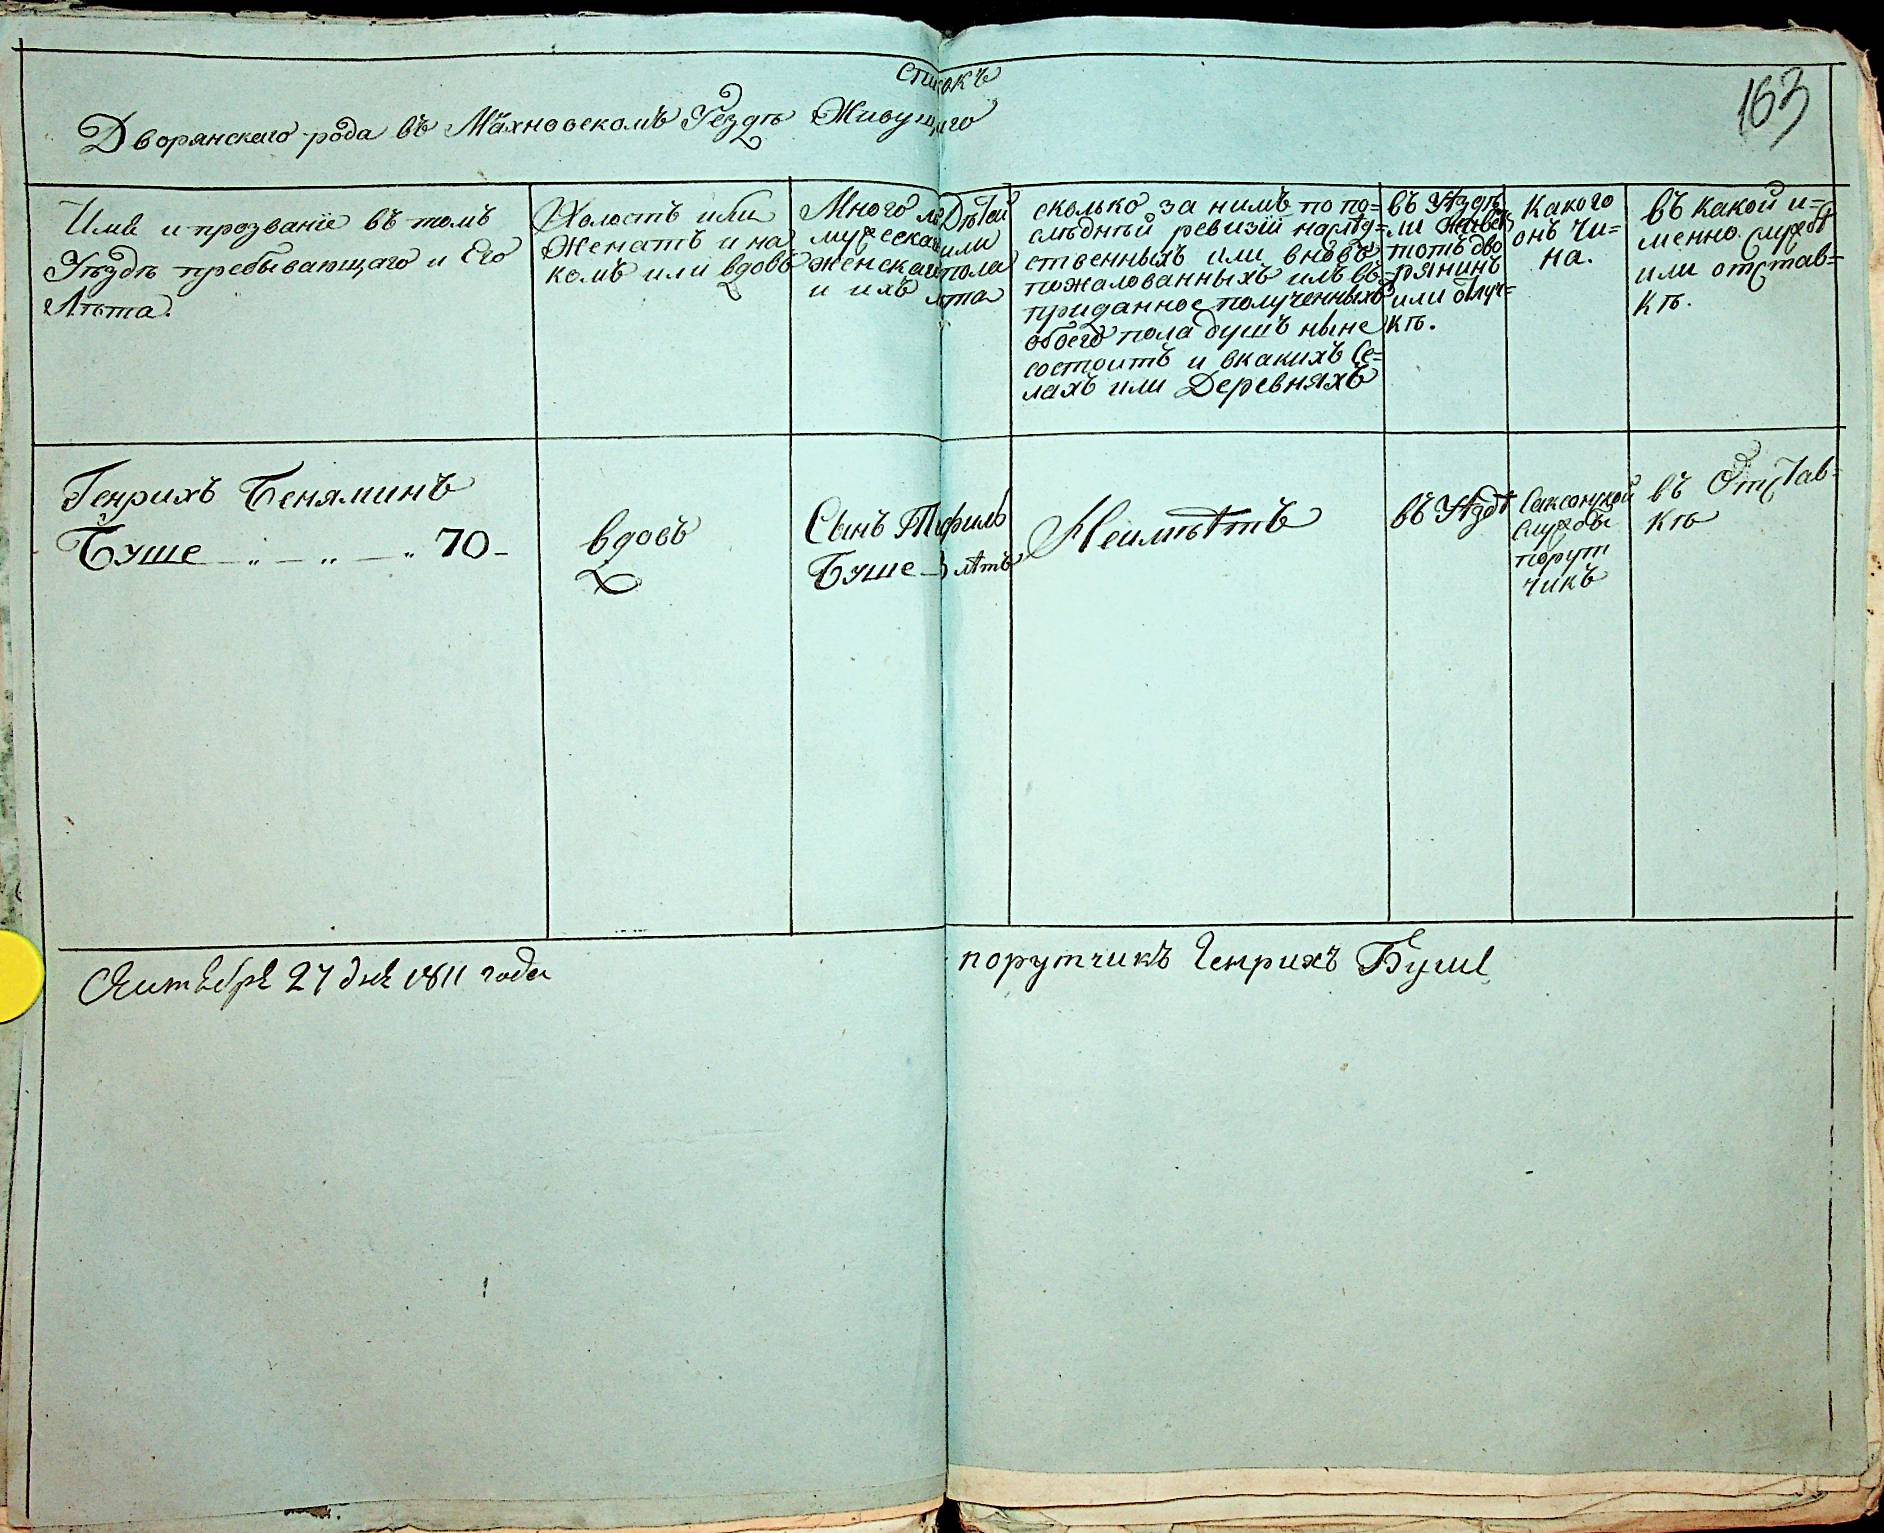 списокъ
163
Дворянскаго рода въ Махновскомъ Уездѣ Живущаго
Имя и прозваніе въ томъ
Уѣздѣ пребывающаго и Его
Лѣта.
Холостъ или
Женатъ и на
комъ или вдовъ
Много ли Дѣтей
мужескаго или
женскаго пола
и ихъ лѣта
сколько за нимъ по по=
слѣдней ревизіи наслѣд=
ственныхъ или вновь
пожалованныхъ илъ въ
приданное полученныхъ
обоего пола душъ ныне
состоитъ и вкакихъ Се=
лахъ или Деревняхъ
въ Уѣздѣ
ли живетъ
тотъ дво
рянинъ
или отлуч=
кѣ.
Какого
онъ Чи=
на.
въ какой и=
менно службѣ
или отстав=
кѣ.
Генрихъ Беняминъ
Буше — „ — „ — „ 70 —
вдовъ
Сынъ
Буше — лѣтъ
Неимѣетъ
въ Уѣздѣ
Саксонской
службы
порут
чикъ
въ Отстав=
кѣ
Сентебря 27 дня 1811 года
порутчикъ Генрихъ Буше